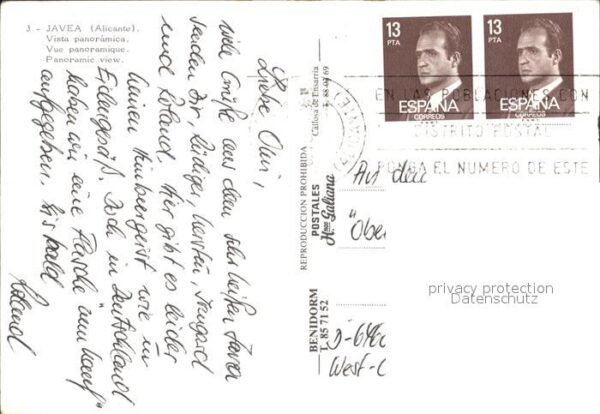 3 - JAVEA (Alicante).
Vista panorámica.
Vue panoramique.
Panoramic view.
Liebe Omi,
viele Grüße aus dem sehr heißen Javea
senden Dir, Rüdiger, Kerstin, Irmgard
und Roland. Hier gibt es leider
keinen Himbeergeist wie im
Doch in Deutschland
haben wir eine Flasche "zum Lauf"
aufgegeben. Bis bald
Roland
REPRODUCCION PROHIBIDA
POSTALES
Hnos Galiana
Callosa de Ensarria
T. 88 00 69
BENIDORM
T. 85 71 52
13
PTA
ESPAÑA
CORREOS
13
PTA
ESPAÑA
CORREOS
EN LAS POBLACIONES CON
DISTRITO POSTAL
PONGA EL NUMERO DE ESTE
Auf dem
"Obe
D-646
West-
privacy protection
Datenschutz